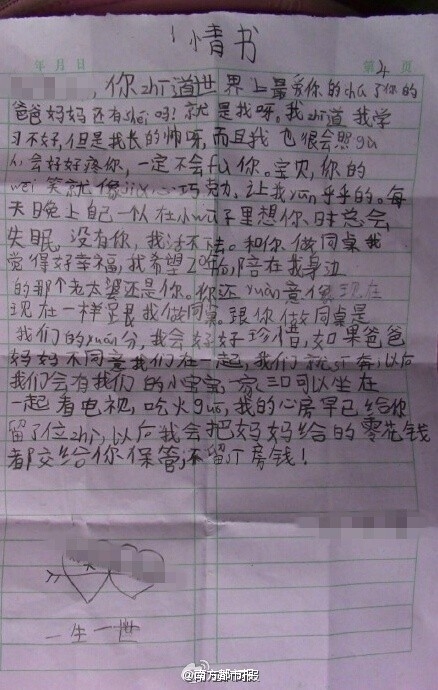 情书
年 月 日 第 4 页
，你zhi道世界上最爱你的cha了你的
爸爸妈妈还有shei吗！就是我呀。我zhi道我学
习不好，但是我长的帅呀，而且我也很会照gu
人，会好好疼你，一定不会fu你。宝贝，你的
wei笑就像jiu心巧克力，让我yun乎乎的。每
天晚上自己一个人在小wu子里想你，时总会
失眠，没有你，我活不下去。和你做同桌我
觉得好幸福，我希望20年后，陪在我身边
的那个老太婆还是你。你还yuan意像现在
现在一样跟我做同桌。跟你做同桌是
我们的yuan分，我会好好珍惜，如果爸爸
妈妈不同意我们在一起，我们就 奔，以后
我们会有我们的小宝宝，一家三口可以坐在
一起看电视，吃火guo，我的心房早已给你
留了位zhi，以后我会把妈妈给的零花钱
都交给你保管，不留 房钱！
一生一世
@南方都市报